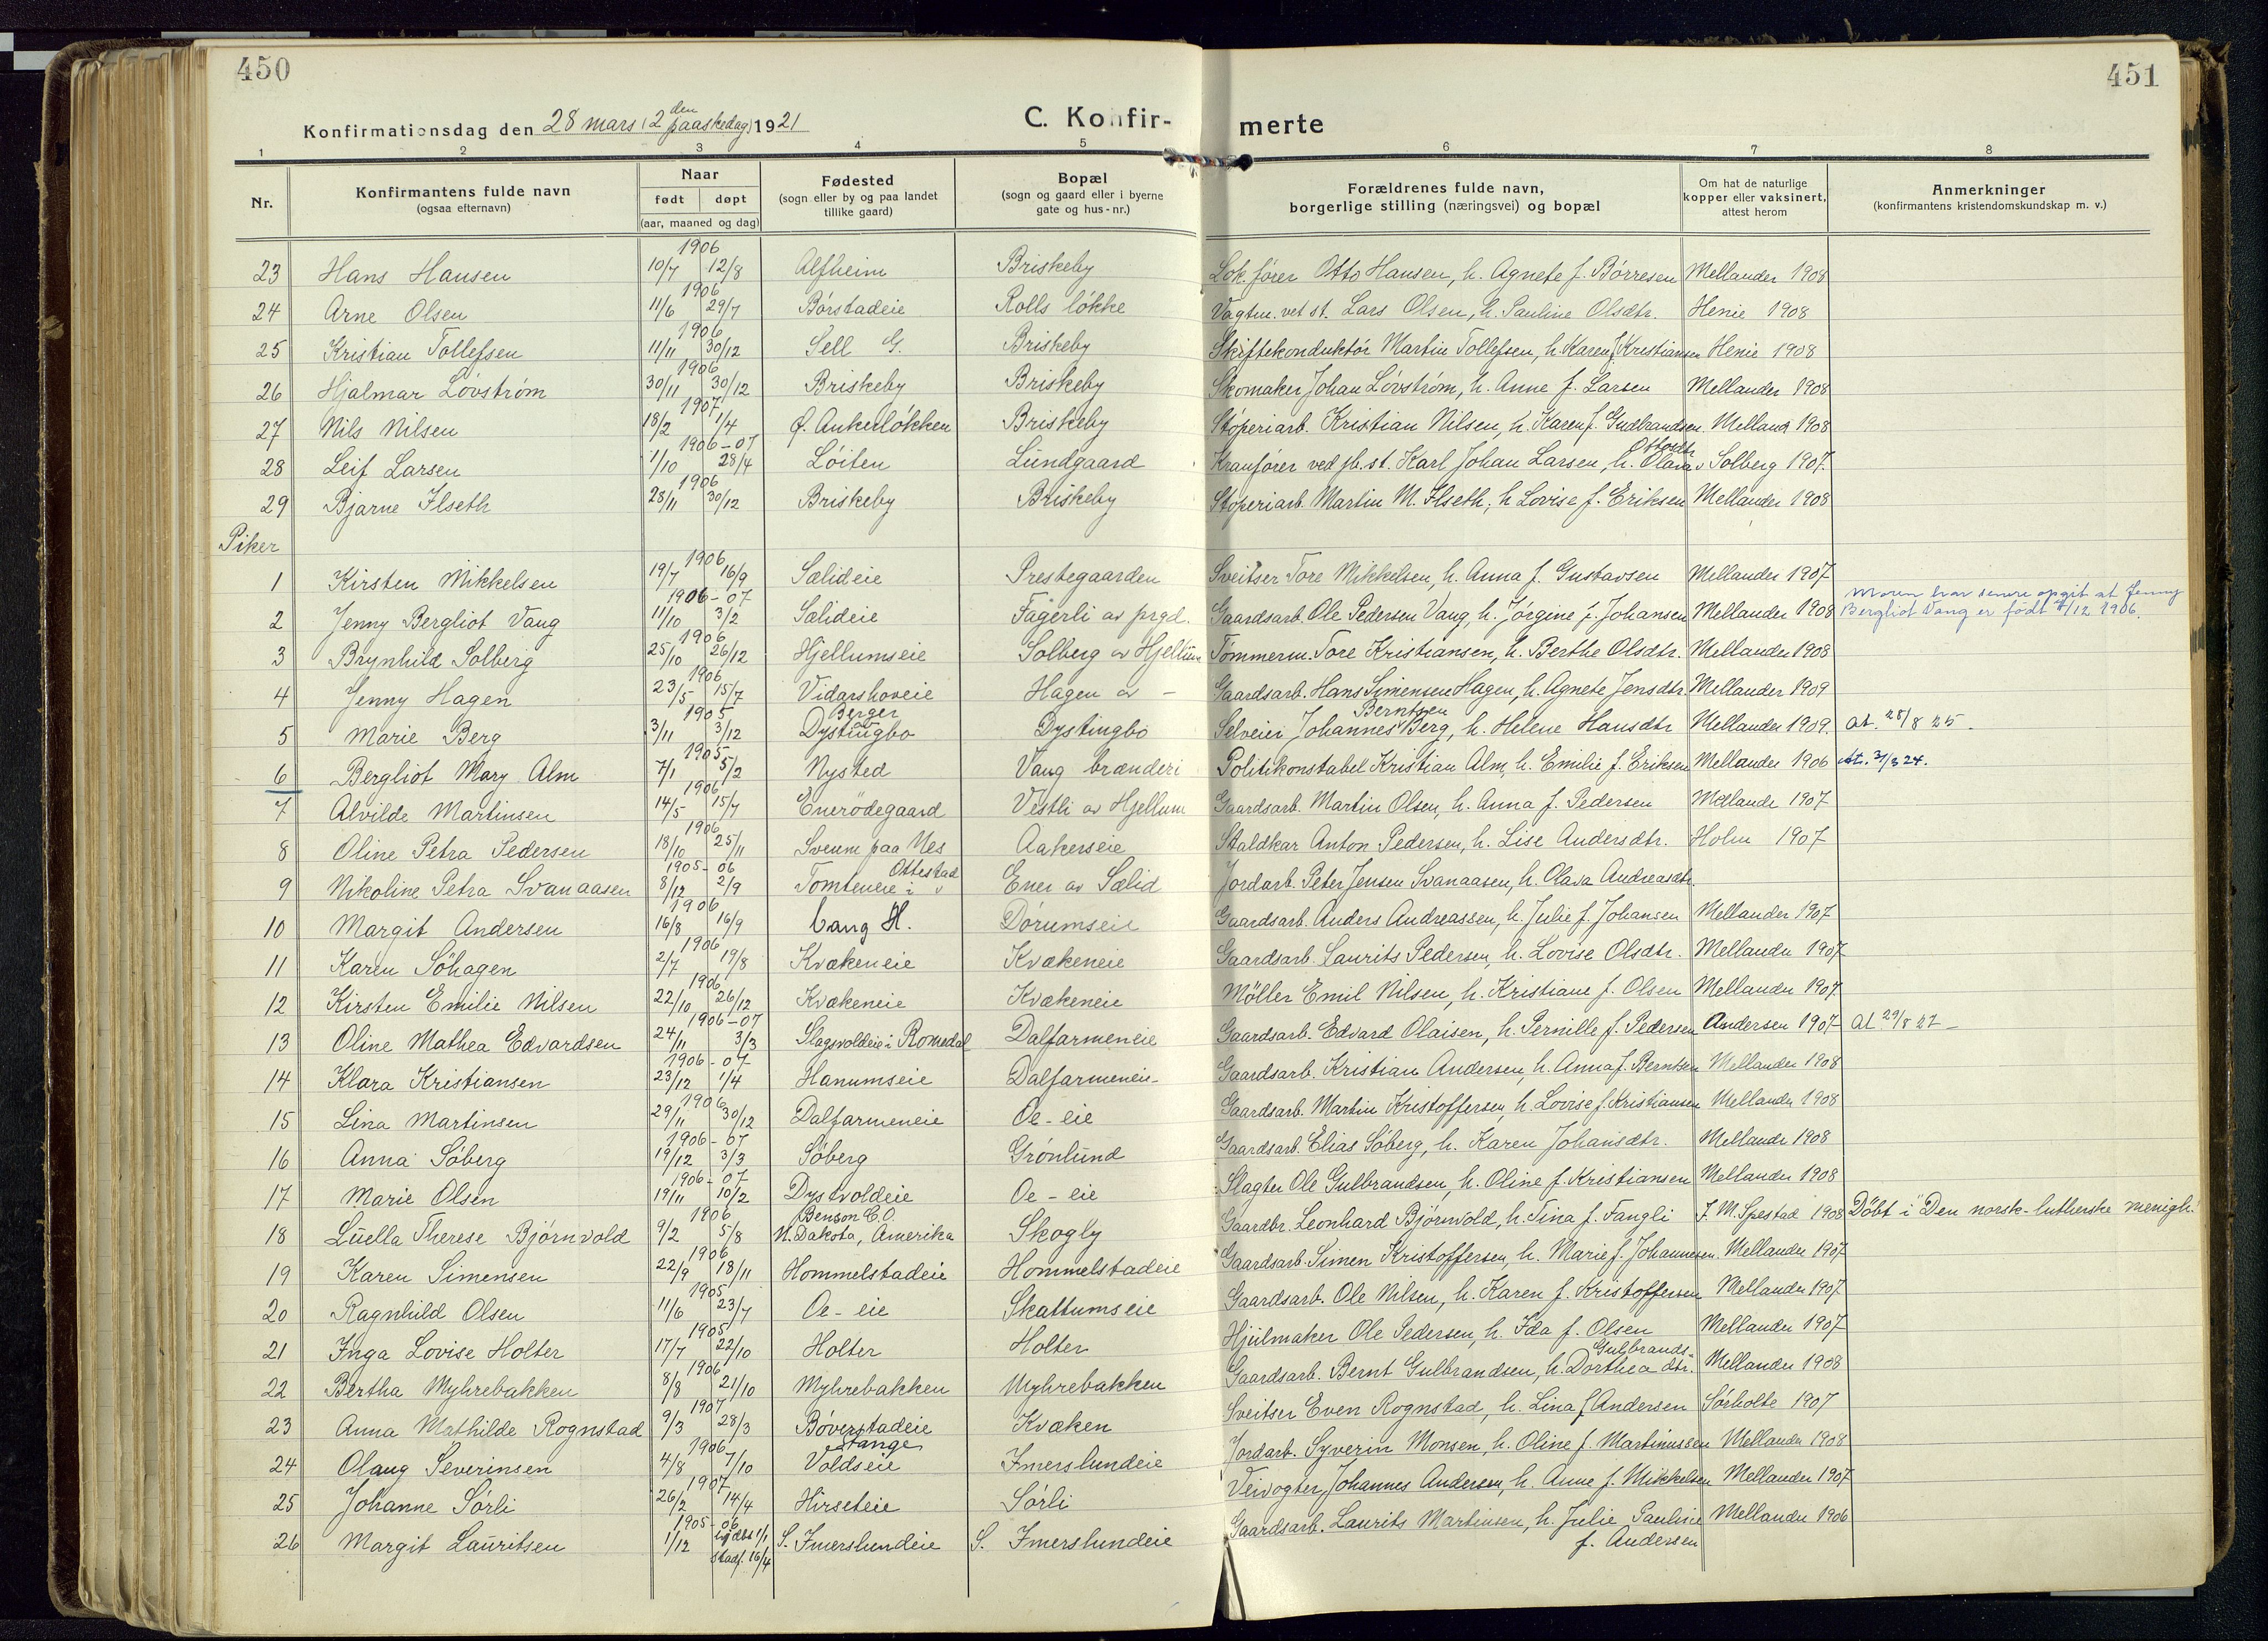 450
451
Konfirmationsdag den 28 mars (2den paaskedag) 1921
C. Konfir-
merte
1 2 3 4 5 6 7 8
Nr.
Konfirmantens fulde navn
(ogsaa efternavn)
Naar
født døpt
(aar, maaned og dag)
Fødested
(sogn eller by og paa landet
tillike gaard)
Bopæl
(sogn og gaard eller i byerne
gate og hus-nr.)
Forældrenes fulde navn,
borgerlige stilling (næringsvei) og bopæl
Om hat de naturlige
kopper eller vaksinert,
attest herom
Anmerkninger
(konfirmantens kristendomskundskap m. v.)
23 Hans Hansen 1906 10/7 12/8 Alfheim Briskeby Lok.fører Otto Hansen, h. Agnete f. Børresen Mellander 1908
24 Arne Olsen 1906 11/6 29/7 Børstadeie Rolls løkke Vagtm. vet st. Lars Olsen, h. Pauline Olsdtr. Henie 1908
25 Kristian Tollefsen 1906 11/11 30/12 Sell G. Briskeby Skiftekonduktør Martin Tollefsen, h. Karen f. Kristiansen Henie 1908
26 Hjalmar Lövström 1906 30/11 30/12 Briskeby Briskeby Skomaker Johan Lövström, h. Anne f. Larsen Mellander 1908
27 Nils Nilsen 1907 18/2 1/4 Ø. Ankerløkken Briskeby Støperiarb. Kristian Nilsen, h. Karen f. Gudbrandsen. Melland 1908
28 Leif Larsen 1906-07 1/10 28/4 Løiten Lundgaard Kranfører ved jb. st. Karl Johan Larsen, h. Olava Ottosdtr Solberg 1907.
29 Bjarne Ilseth 1906 28/11 30/12 Briskeby Briskeby Støperiarb. Martin M. Ilseth, h Lovise f. Eriksen Mellander 1908
Piker
1 Kirsten Mikkelsen 1906 19/7 16/9 Sælideie Prestegaarden Sveitser Tore Mikkelsen, h. Anna f. Gustavsen Mellander 1907
2 Jenny Bergliot Vang 1906-07 11/10 3/2 Sælideie Fagerli av prgd. Gaardsarb. Ole Pedersen Vang, h. Jørgine f. Johansen Mellander 1908 Moren har senere opgit at Jenny
Bergliot Vang er født /12 1906.
3 Brynhild Solberg 1906 25/10 26/12 Hjellumseie Solberg av Hjellum Tømmerm. Tore Kristiansen, h. Berthe Olsdtr. Mellander 1908
4 Jenny Hagen 1906 23/5 15/7 Vidarshoveie Hagen av - Gaardsarb. Hans Simensen Hagen, h. Agnete Jensdtr. Mellander 1909
5 Marie Berg 1905 3/11 3/12 Berger av Dystingbo Dystingbo Selveier Johannes Berntsen Berg, h. Helene Hansdtr Mellander 1909. at. 28/8 25-
6 Bergliot Mary Alm 1905 7/1 5/2 Nysted Vang brænderi Politikonstabel Kristian Alm, h. Emilie f. Eriksen Mellander 1906 at. 3/3 24.
7 Alvilde Martinsen 1906 14/5 15/7 Enerødegaard Vestli av Hjellum Gaardsarb. Martin Olsen, h. Anna f. Pedersen Mellande 1907
8 Oline Petra Pedersen 1906 18/10 25/11 Sveum paa Nes Aakerseie Staldkar Anton Pedersen, h. Lise Andersdtr. Holm 1907
9 Nikoline Petra Svanaasen 1905-06 8/12 2/9 Tomteneie i Ottestad Ener av Sælid Jordarb. Peter Jensen Svanaasen, h. Olava Andreasdtr.
10 Margit Andersen 1906 16/8 16/9 Vang H. Dørumseie Gaardsarb. Anders Andreassen, h. Julie f. Johansen Mellander 1907
11 Karen Söhagen 1906 2/7 19/8 Kvækeneie Kvækeneie Gaardsarb. Laurits Pedersen, h. Lovise Olsdtr. Mellander 1907
12 Kirsten Emilie Nilsen 1906 22/10 26/12 Kvækeneie Kvækeneie Møller Emil Nilsen, h. Kristiane f. Olsen Mellander 1907
13 Oline Mathea Edvardsen 1906-07 24/11 3/3 Slagsvoldeie i Romedal Dalfarmeneie Gaardsarb. Edvard Olaisen, h. Pernille f. Pedersen Andersen 1907 at 29/8 27-
14 Klara Kristiansen 1906-07 23/12 1/4 Hanumseie Dalfarmeneie Gaardsarb. Kristian Andersen, h. Anna f. Berntsen Mellander 1908
15 Lina Martinsen 1906 29/11 30/12 Dalfarmeneie Oe-eie Gaardsarb. Martin Kristoffersen, h. Lovise f. Kristiansen Mellander 1908
16 Anna Söberg 1906-07 19/12 3/3 Söberg Grönlund Gaardsarb. Elias Söberg, h. Karen Johansdtr. Mellande 1908
17 Marie Olsen 1906-07 19/11 10/2 Dystvoldeie Oe-eie Slagter Ole Gulbrandsen, h. Oline f. Kristiansen Mellander 1908
18 Luella Therese Bjørnvold 1906 9/2 5/8 Benson C.O. N. Dakota, Amerika Skogly Gaardbr. Leonhard Bjørnvold, h. Tina f. Fangli J. M. Spestad 1908 Döbt i Den norsk-lutherske menigh.
19 Karen Simensen 1906 22/9 18/11 Hommelstadeie Hommelstadeie Gaardsarb. Simen Kristoffersen, h. Marie f. Johannesen. Mellander 1907
20 Ragnhild Olsen 1905 11/6 23/7 Oe-eie Skattumseie Gaardsarb. Ole Nilsen, h. Karen f. Kristoffersen Mellander 1907
21 Inga Lovise Holter 1905 17/7 22/10 Holter Holter Hjulmaker Ole Pedersen, h. Ida f. Olsen Mellander 1907
22 Bertha Myhrebakken 1906 8/8 21/10 Myhrebakken Myhrebakken Gaardsarb. Bernt Gulbrandsen, h. Dorthea Gulbrands-dtr. Mellander 1908
23 Anna Mathilde Rognstad 1907 9/3 28/3 Bøverstadeie Kvæken Sveitser Even Rognstad, h. Lina f. Andersen Sørholte 1907
24 Olaug Severinsen 1906 4/8 7/10 Stange Voldseie Imerslundeie Jordarb. Syverin Monsen, h. Oline f. Martinussen Mellander 1908
25 Johanne Sörli 1907 26/2 14/4 Hirseteie Sörli Veivogter, Johannes Andersen, h. Anne f. Mikkelsen Mellander 1907
26 Margit Lauritsen 1905-06 1/12 hjdbt 1/1 stadf. 16/4 S. Imerslundeie S. Imerslundeie Gaardsarb. Laurits Martinsen, h. Julie Pauline Mellander 1906
f. Andersen